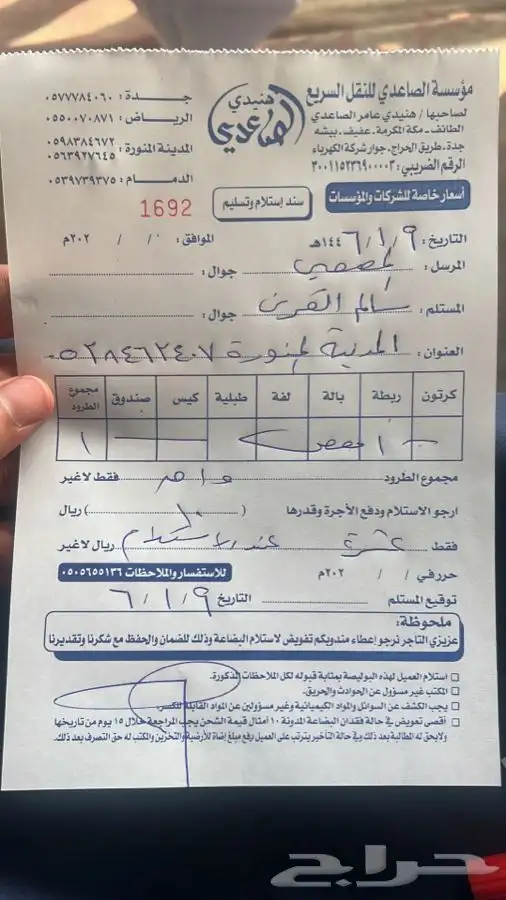 مؤسسة الصاعدي للنقل السريع
لصاحبها / هنيدي عامر الصاعدي
الطائف - مكة المكرمة - عفيف - بيشه
جدة - طريق الحراج - جوار شركة الكهرباء
الرقم الضريبي: ٣٠٠١١٥٢٣٦٩٠٠٠٠٣
هنيدي
الصاعدي
جـــدة : ٠٥٧٧٧٨٤٠٦٠
الرياض : ٠٥٥٠٠٧٠٨٧١
المدينة المنورة : ٠٥٩٨٣٨٤٦٧٢
٠٥٦٣٩٢٧٦٤٥
الدمام : ٠٥٣٩٧٣٩٣٧٥
أسعار خاصة للشركات والمؤسسات
سند إستلام وتسليم
1692
التاريخ : ٦/١/٩ ١٤٤هـ الموافق : / / ٢٠٢م
المرسل : جوال :
المستلم : سالم القرين جوال :
العنوان : المدينة المنورة ٠٥٢٨٤٦٢٤٠٧
كرتون ربطة بالة لفة طبلية كيس صندوق مجموع الطرود
١ ١
مجموع الطرود واحد فقط لاغير
ارجو الاستلام ودفع الأجرة وقدرها ( ١٠ ) ريال
فقط عشرة عند الاستلام ريال لاغير
حرر في / / ٢٠٢م للاستفسار والملاحظات ٠٥٠٥٦٥٥١٣٦
توقيع المستلم التاريخ ٦/١/٩
ملحوظة:
عزيزي التاجر نرجو إعطاء مندوبكم تفويض لاستلام البضاعة وذلك للضمان والحفظ مع شكرنا وتقديرنا
استلام العميل لهذه البوليصة بمثابة قبوله لكل الملاحظات المذكورة.
المكتب غير مسؤول عن الحوادث والحريق.
يجب الكشف عن السوائل والمواد الكيميائية وغير مسؤولين عن المواد القابلة للكسر.
أقصى تعويض في حالة فقدان البضاعة المدونة ١٠ أمثال قيمة الشحن يجب المراجعة خلال ١٥ يوم من تاريخها
ولايحق له المطالبة بعد ذلك وفي حالة التأخير يترتب على العميل رفع مبلغ إضافة للأرضية والتخزين والمكتب له حق التصرف بعد ذلك.
حراج